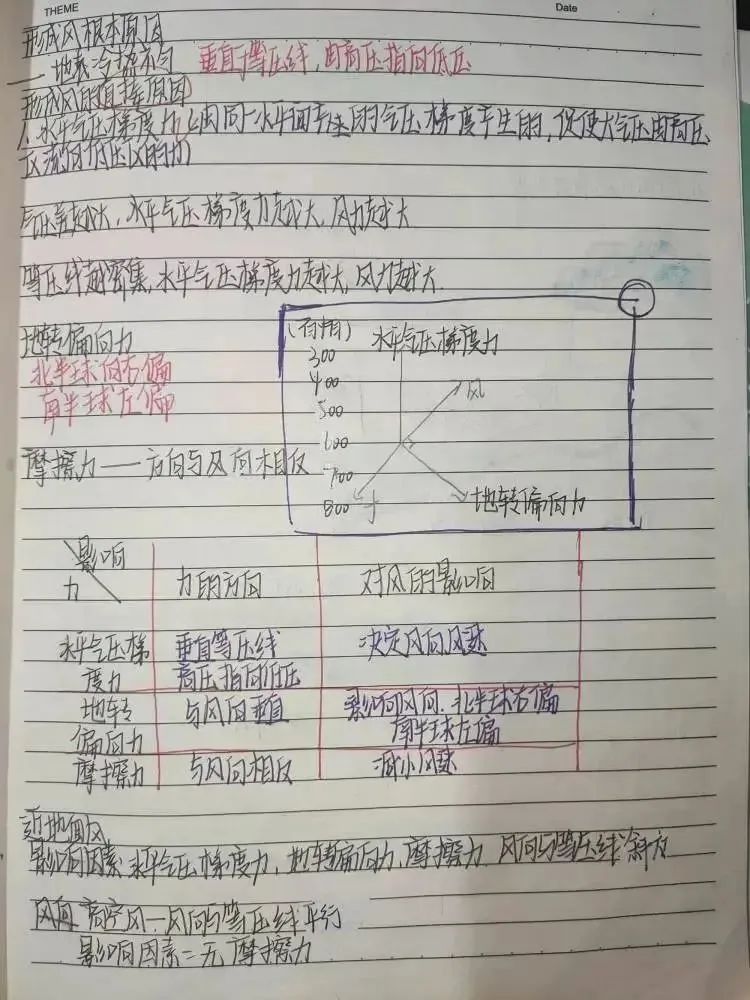 THEME Date
形成风根本原因
— 地表冷热不匀 垂直于等压线，由高压指向低压
形成风的直接原因
1、水平气压梯度力（由同一水平面产生的气压梯度产生的，促使大气压由高压
区流向低压区的力）
气压差越大，水平气压梯度力越大，风力越大
等压线越密集，水平气压梯度力越大，风力越大
地转偏向力
北半球向右偏
南半球左偏
摩擦力——方向与风向相反
（百帕） 水平气压梯度力
300
400 风
500
600
700
800 f 地转偏向力
影响
力 力的方向 对风的影响
水平气压梯 垂直等压线 决定风向风速
度力 高压指向低压
地转 与风向垂直 影响风向，北半球右偏
偏向力 南半球左偏
摩擦力 与风向相反 减小风速
近地面风
影响因素 水平气压梯度力，地转偏向力，摩擦力 风向与等压线斜交
风向 高空风—风向与等压线平行
影响因素=无摩擦力